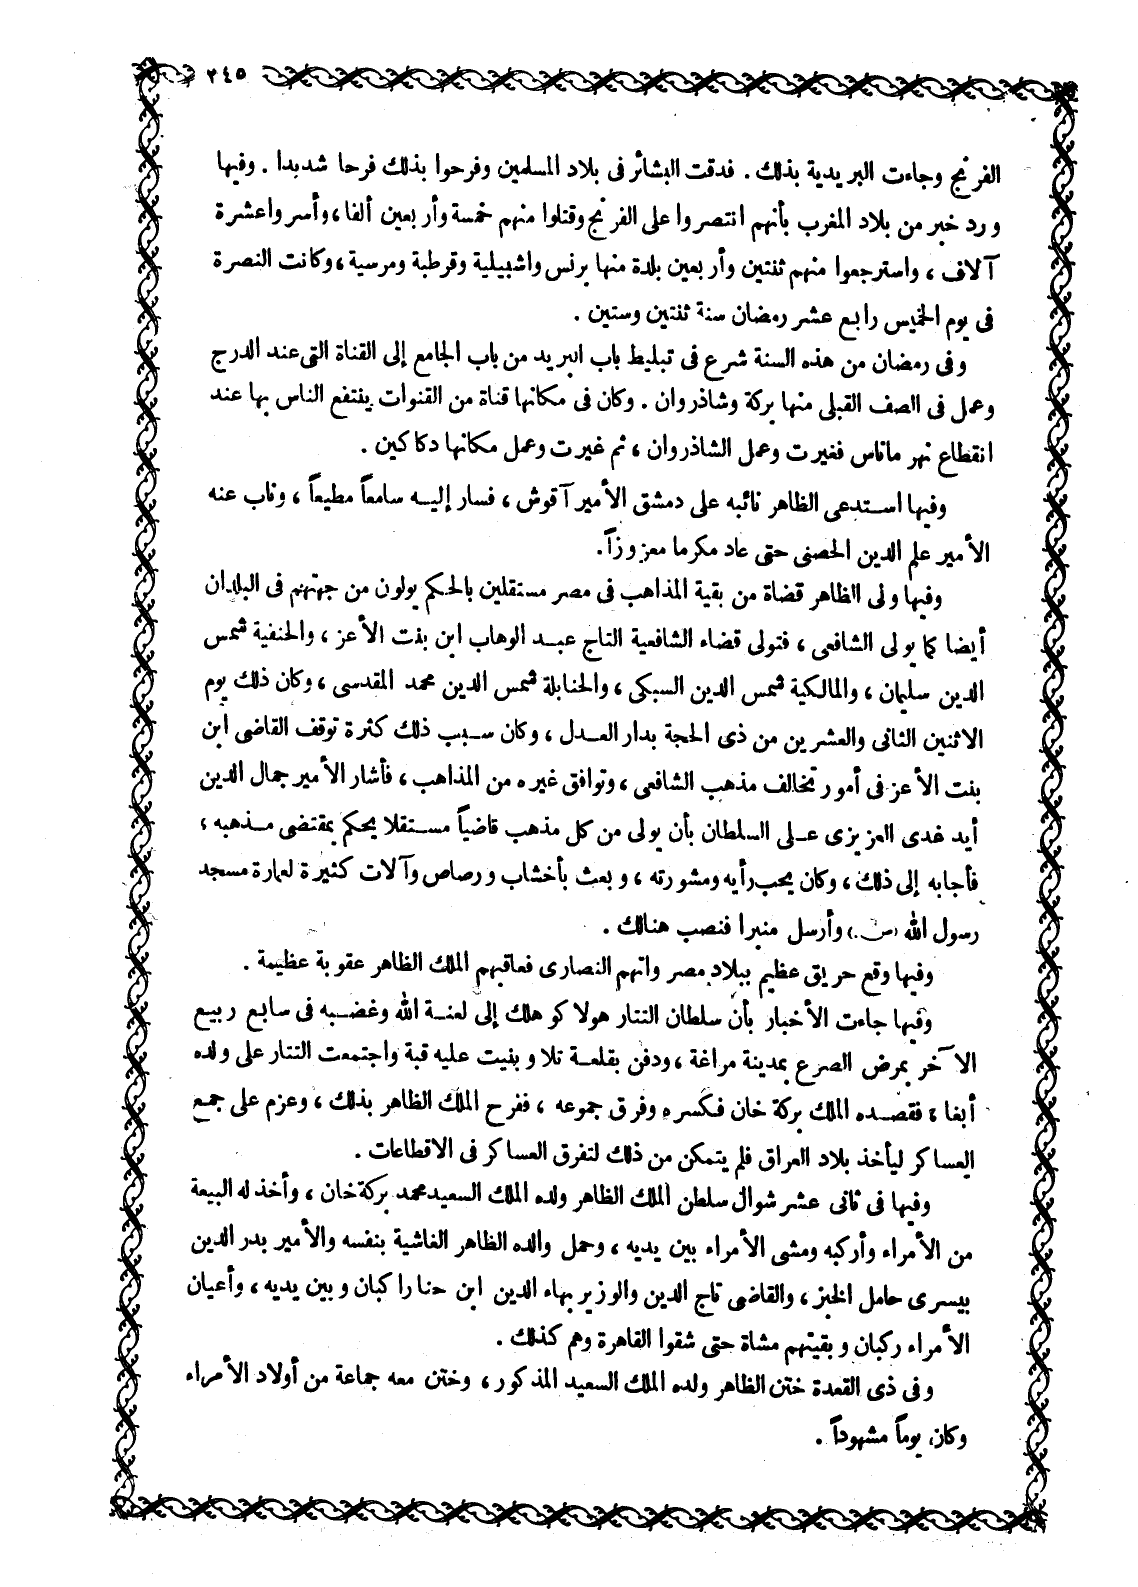 ٢٤٥
الفرنج وجاءت البريدية بذلك . فدقت البشائر فى بلاد المسلمين وفرحوا بذلك فرحا شديدا . وفيها
ورد خبر من بلاد المغرب بأنهم انتصروا على الفرنج وقتلوا منهم خمسة وأربعين ألفا ، وأسروا عشرة
آلاف ، واسترجعوا منهم ثنتين وأربعين بلدة منها برنس واشبيلية وقرطبة ومرسية ، وكانت النصرة
فى يوم الخميس رابع عشر رمضان سنة ثنتين وستين .
وفى رمضان من هذه السنة شرع فى تبليط باب البريد من باب الجامع إلى القناة التى عند الدرج
وعمل فى الصف القبلى منها بركة وشاذروان . وكان فى مكانها قناة من القنوات ينتفع الناس بها عند
انقطاع نهر ماناس فغيرت وعمل الشاذروان ، ثم غيرت وعمل مكانها دكاكين .
وفيها استدعى الظاهر نائبه على دمشق الأمير آقوش ، فسار إليه سامعاً مطيعاً ، وناب عنه
الأمير علم الدين الحصنى حتى عاد مكرما معزوزاً .
وفيها ولى الظاهر قضاة من بقية المذاهب فى مصر مستقلين بالحكم يولون من جهتهم فى البلدان
أيضا كما يولى الشافعى ، فتولى قضاء الشافعية التاج عبد الوهاب ابن بنت الأعز ، والحنفية شمس
الدين سليمان ، والمالكية شمس الدين السبكى ، والحنابلة شمس الدين محمد المقدسى ، وكان ذلك يوم
الاثنين الثانى والعشرين من ذى الحجة بدار العدل ، وكان سبب ذلك كثرة توقف القاضى ابن
بنت الأعز فى أمور تخالف مذهب الشافعى ، وتوافق غيره من المذاهب ، فأشار الأمير جمال الدين
أيدغدى العزيزى على السلطان بأن يولى من كل مذهب قاضياً مستقلا يحكم بمقتضى مذهبه ،
فأجابه إلى ذلك ، وكان يحب رأيه ومشورته ، وبعث بأخشاب ورصاص وآلات كثيرة لعمارة مسجد
رسول الله (س.) وأرسل منبرا فنصب هنالك .
وفيها وقع حريق عظيم ببلاد مصر واتهم النصارى فعاقبهم الملك الظاهر عقوبة عظيمة .
وفيها جاءت الأخبار بأن سلطان التتار هولاكو هلك إلى لعنة الله وغضبه فى سابع ربيع
الآخر بمرض الصرع بمدينة مراغة ، ودفن بقلعة تلا وبنيت عليه قبة واجتمعت التتار على ولده
أبغا ، فقصده الملك بركة خان فكسره وفرق جموعه ، ففرح الملك الظاهر بذلك ، وعزم على جمع
العساكر ليأخذ بلاد العراق فلم يتمكن من ذلك لتفرق العساكر فى الاقطاعات .
وفيها فى ثانى عشر شوال سلطن الملك الظاهر ولده الملك السعيد محمد بركة خان ، وأخذ له البيعة
من الأمراء وأركبه ومشى الأمراء بين يديه ، وحمل والده الظاهر الغاشية بنفسه والأمير بدر الدين
بيسرى حامل الخبز ، والقاضى تاج الدين والوزير بهاء الدين ابن حنا راكبان وبين يديه ، وأعيان
الأمراء ركبان وبقيتهم مشاة حتى شقوا القاهرة وهم كذلك .
وفى ذى القعدة ختن الظاهر ولده الملك السعيد المذكور ، وختن معه جماعة من أولاد الأمراء
وكان يوماً مشهوداً .